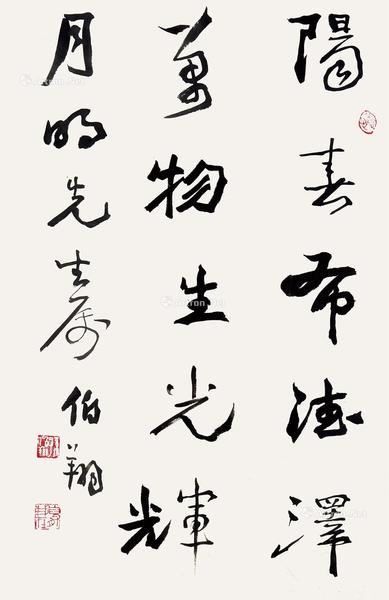 陽春布德澤
萬物生光輝
月明先生属
伯翔